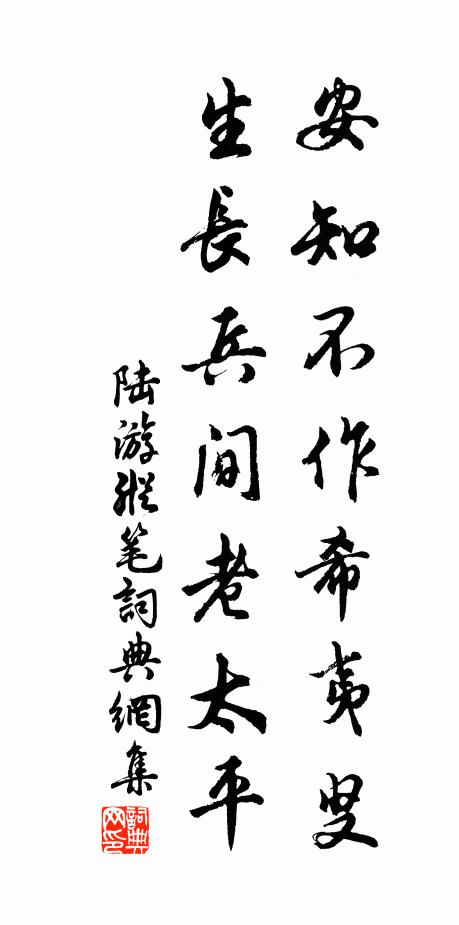 安知不作希夷叟
生長兵間老太平
陸游縱笔詞典網集
詞典网印